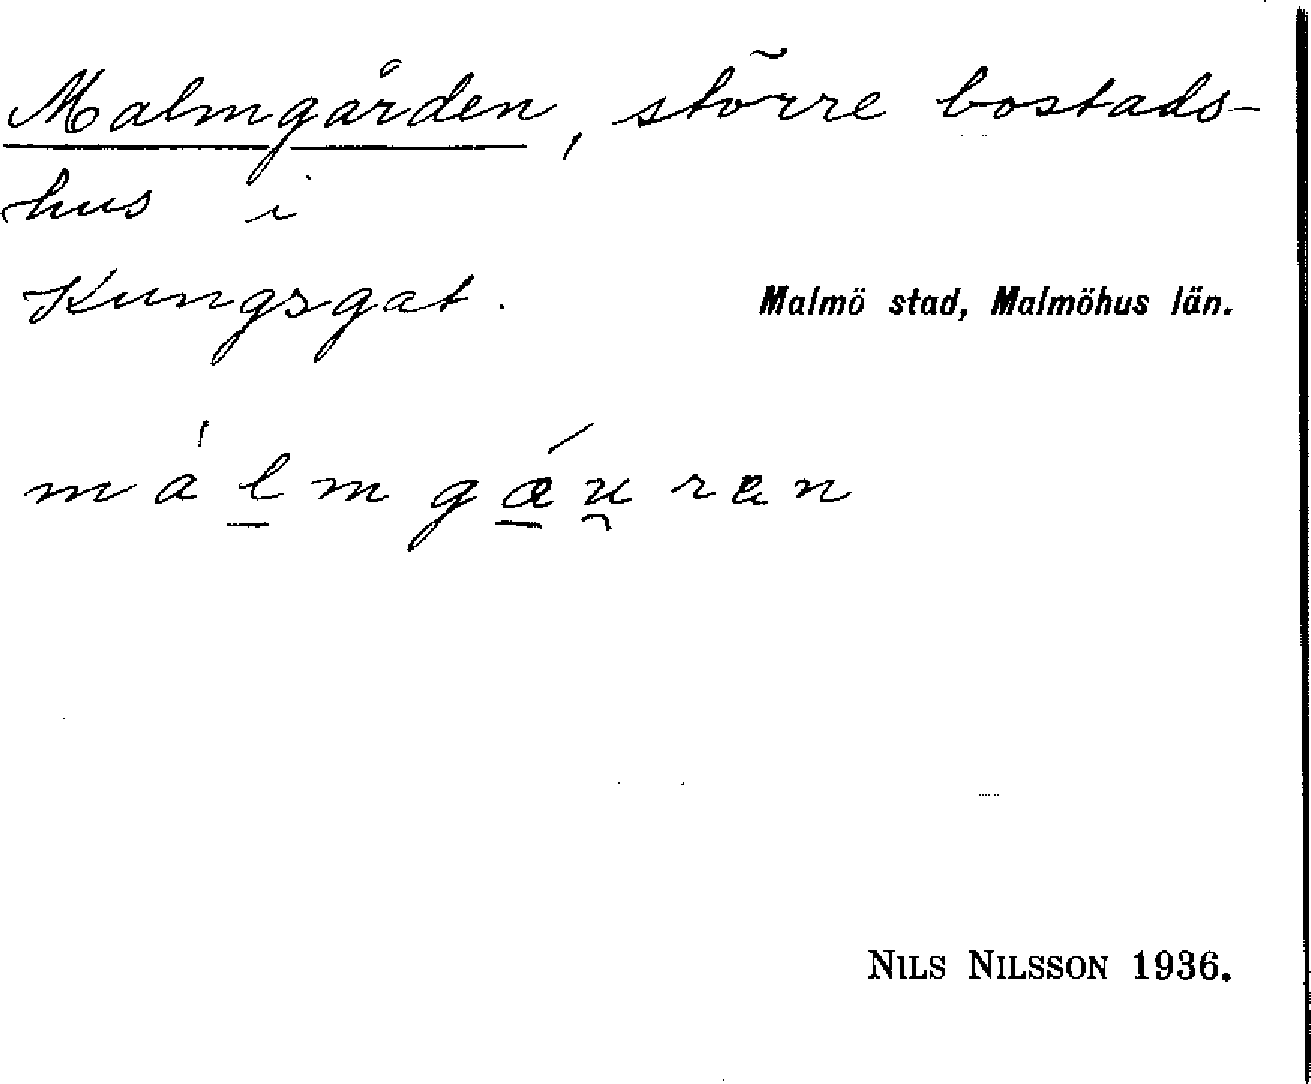 Malmgården, större bostads-
hus i
Kungsgat.
Malmö stad, Malmöhus län.
málmgǽu̯ran
NILS NILSSON 1936.